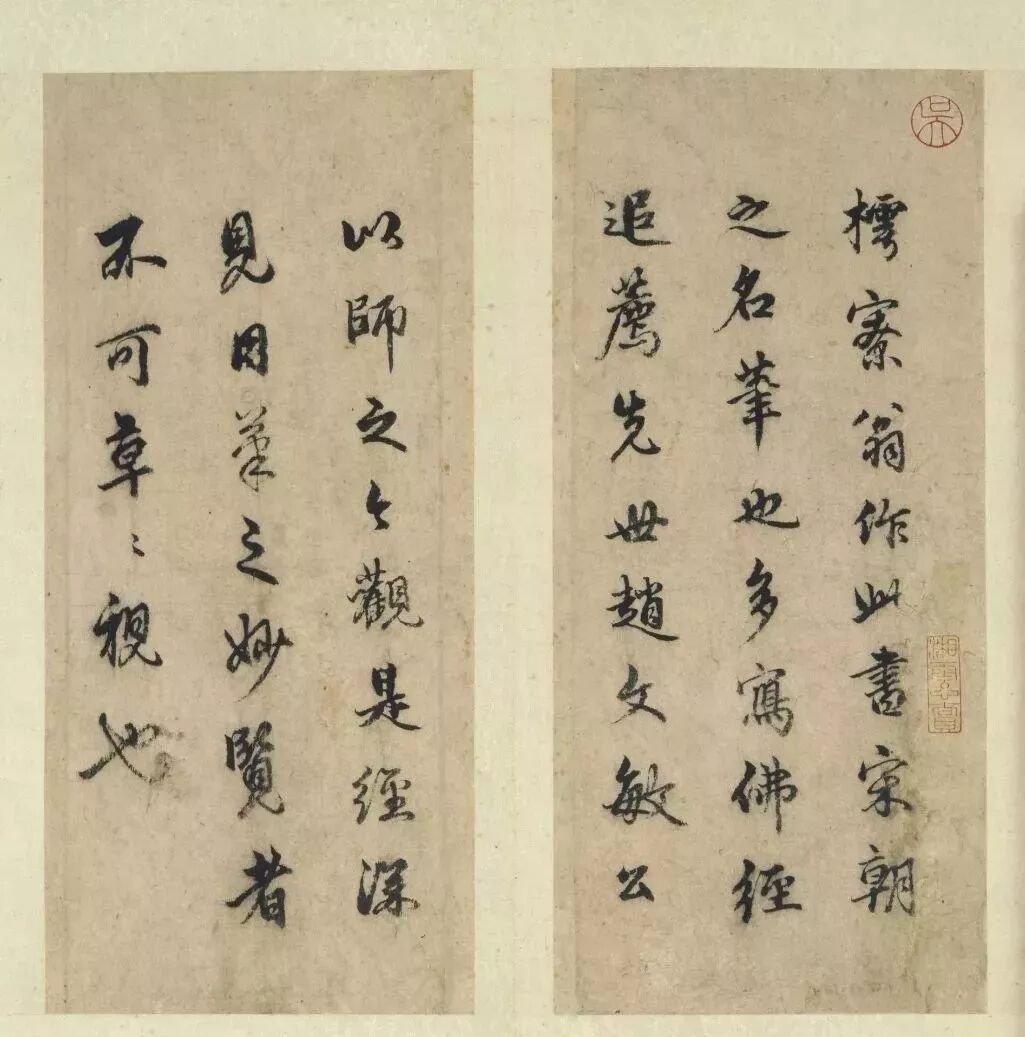 吳
樗寮翁作此書宋朝
之名筆也多寫佛經
追薦先世趙文敏公
以師之今觀是經深
見用筆之妙覽者
不可草々視也